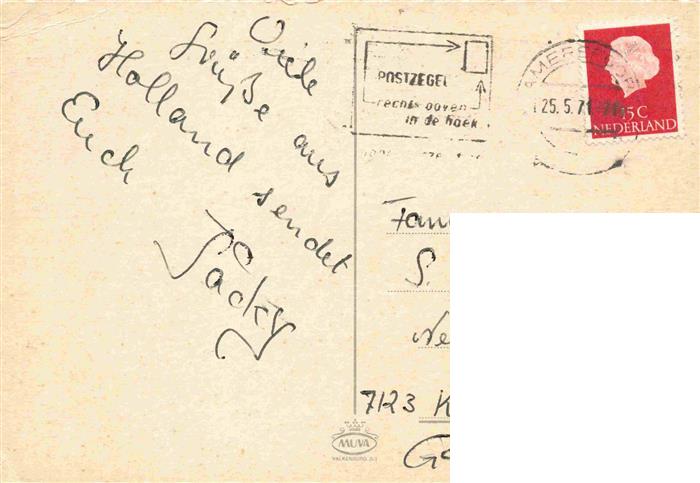 Viele
Grüße aus
Holland sendet
Euch
Jacky
POSTZEGEL
rechts boven
in de hoek
AMERSFOORT
25.5.71
15C
NEDERLAND
Fam
S.
Ne
7123 K
MUVA
VALKENBURG